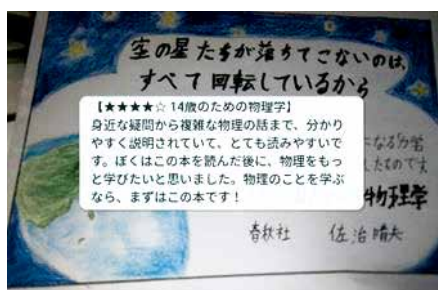 空の星たちが落ちてこないのは、
すべて回転しているから
【★★★★☆ 14歳のための物理学】
身近な疑問から複雑な物理の話まで、分かり
やすく説明されていて、とても読みやすいで
す。ぼくはこの本を読んだ後に、物理をもっ
と学びたいと思いました。物理のことを学ぶ
なら、まずはこの本です！
になる
したものです
物理学
春秋社 佐治晴夫